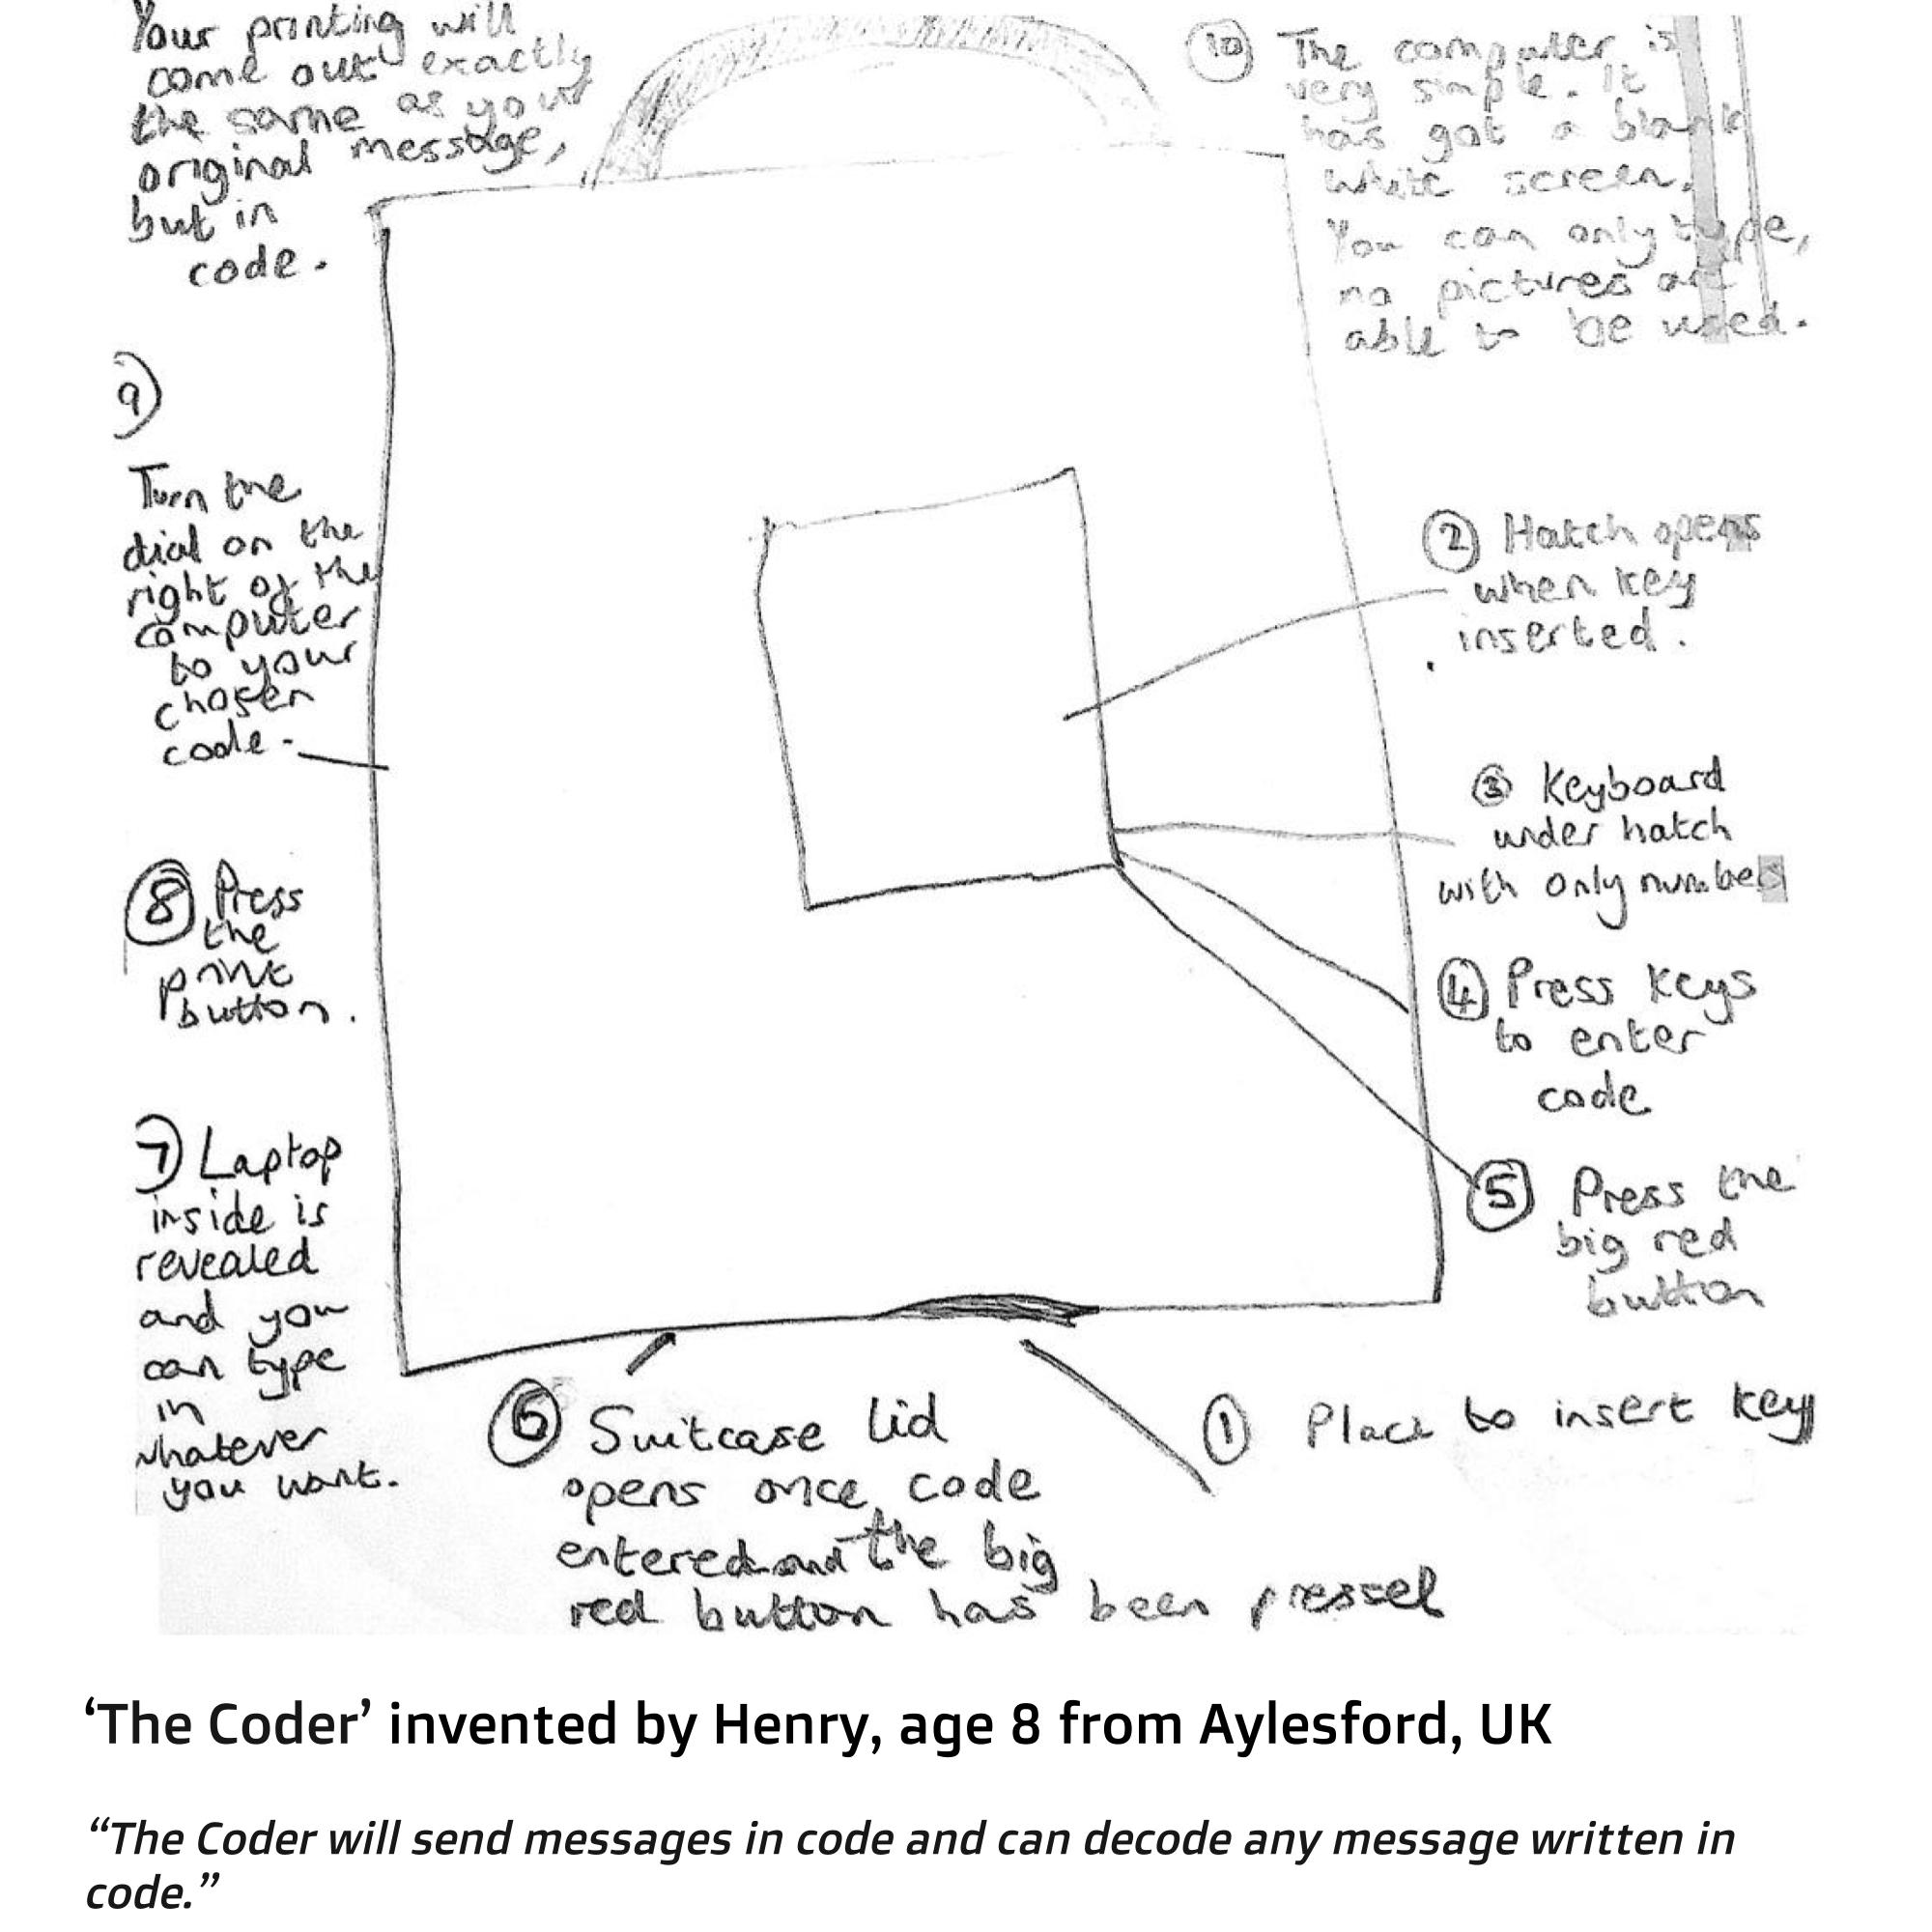 Your printing will
come out exactly
the same as your
original message,
but in
code.
10 The computer is
very simple. It
has got a blank
white screen.
You can only type,
no pictures are
able to be used.
9)
Turn the
dial on the
right of the
computer
to your
chosen
code.
2 Hatch opens
when key
inserted.
3 Keyboard
under hatch
with only numbers
8 Press
the
print
button.
4 Press keys
to enter
code
7) Laptop
inside is
revealed
and you
can type
in
whatever
you want.
5 Press the
big red
button
6 Suitcase lid
opens once code
entered and the big
red button has been pressed
1 Place to insert key
‘The Coder’ invented by Henry, age 8 from Aylesford, UK
“The Coder will send messages in code and can decode any message written in
code.”